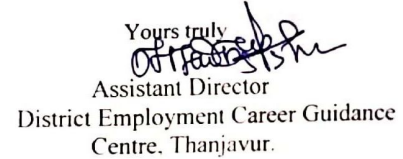 Yours truly
Assistant Director
District Employment Career Guidance
Centre, Thanjavur.